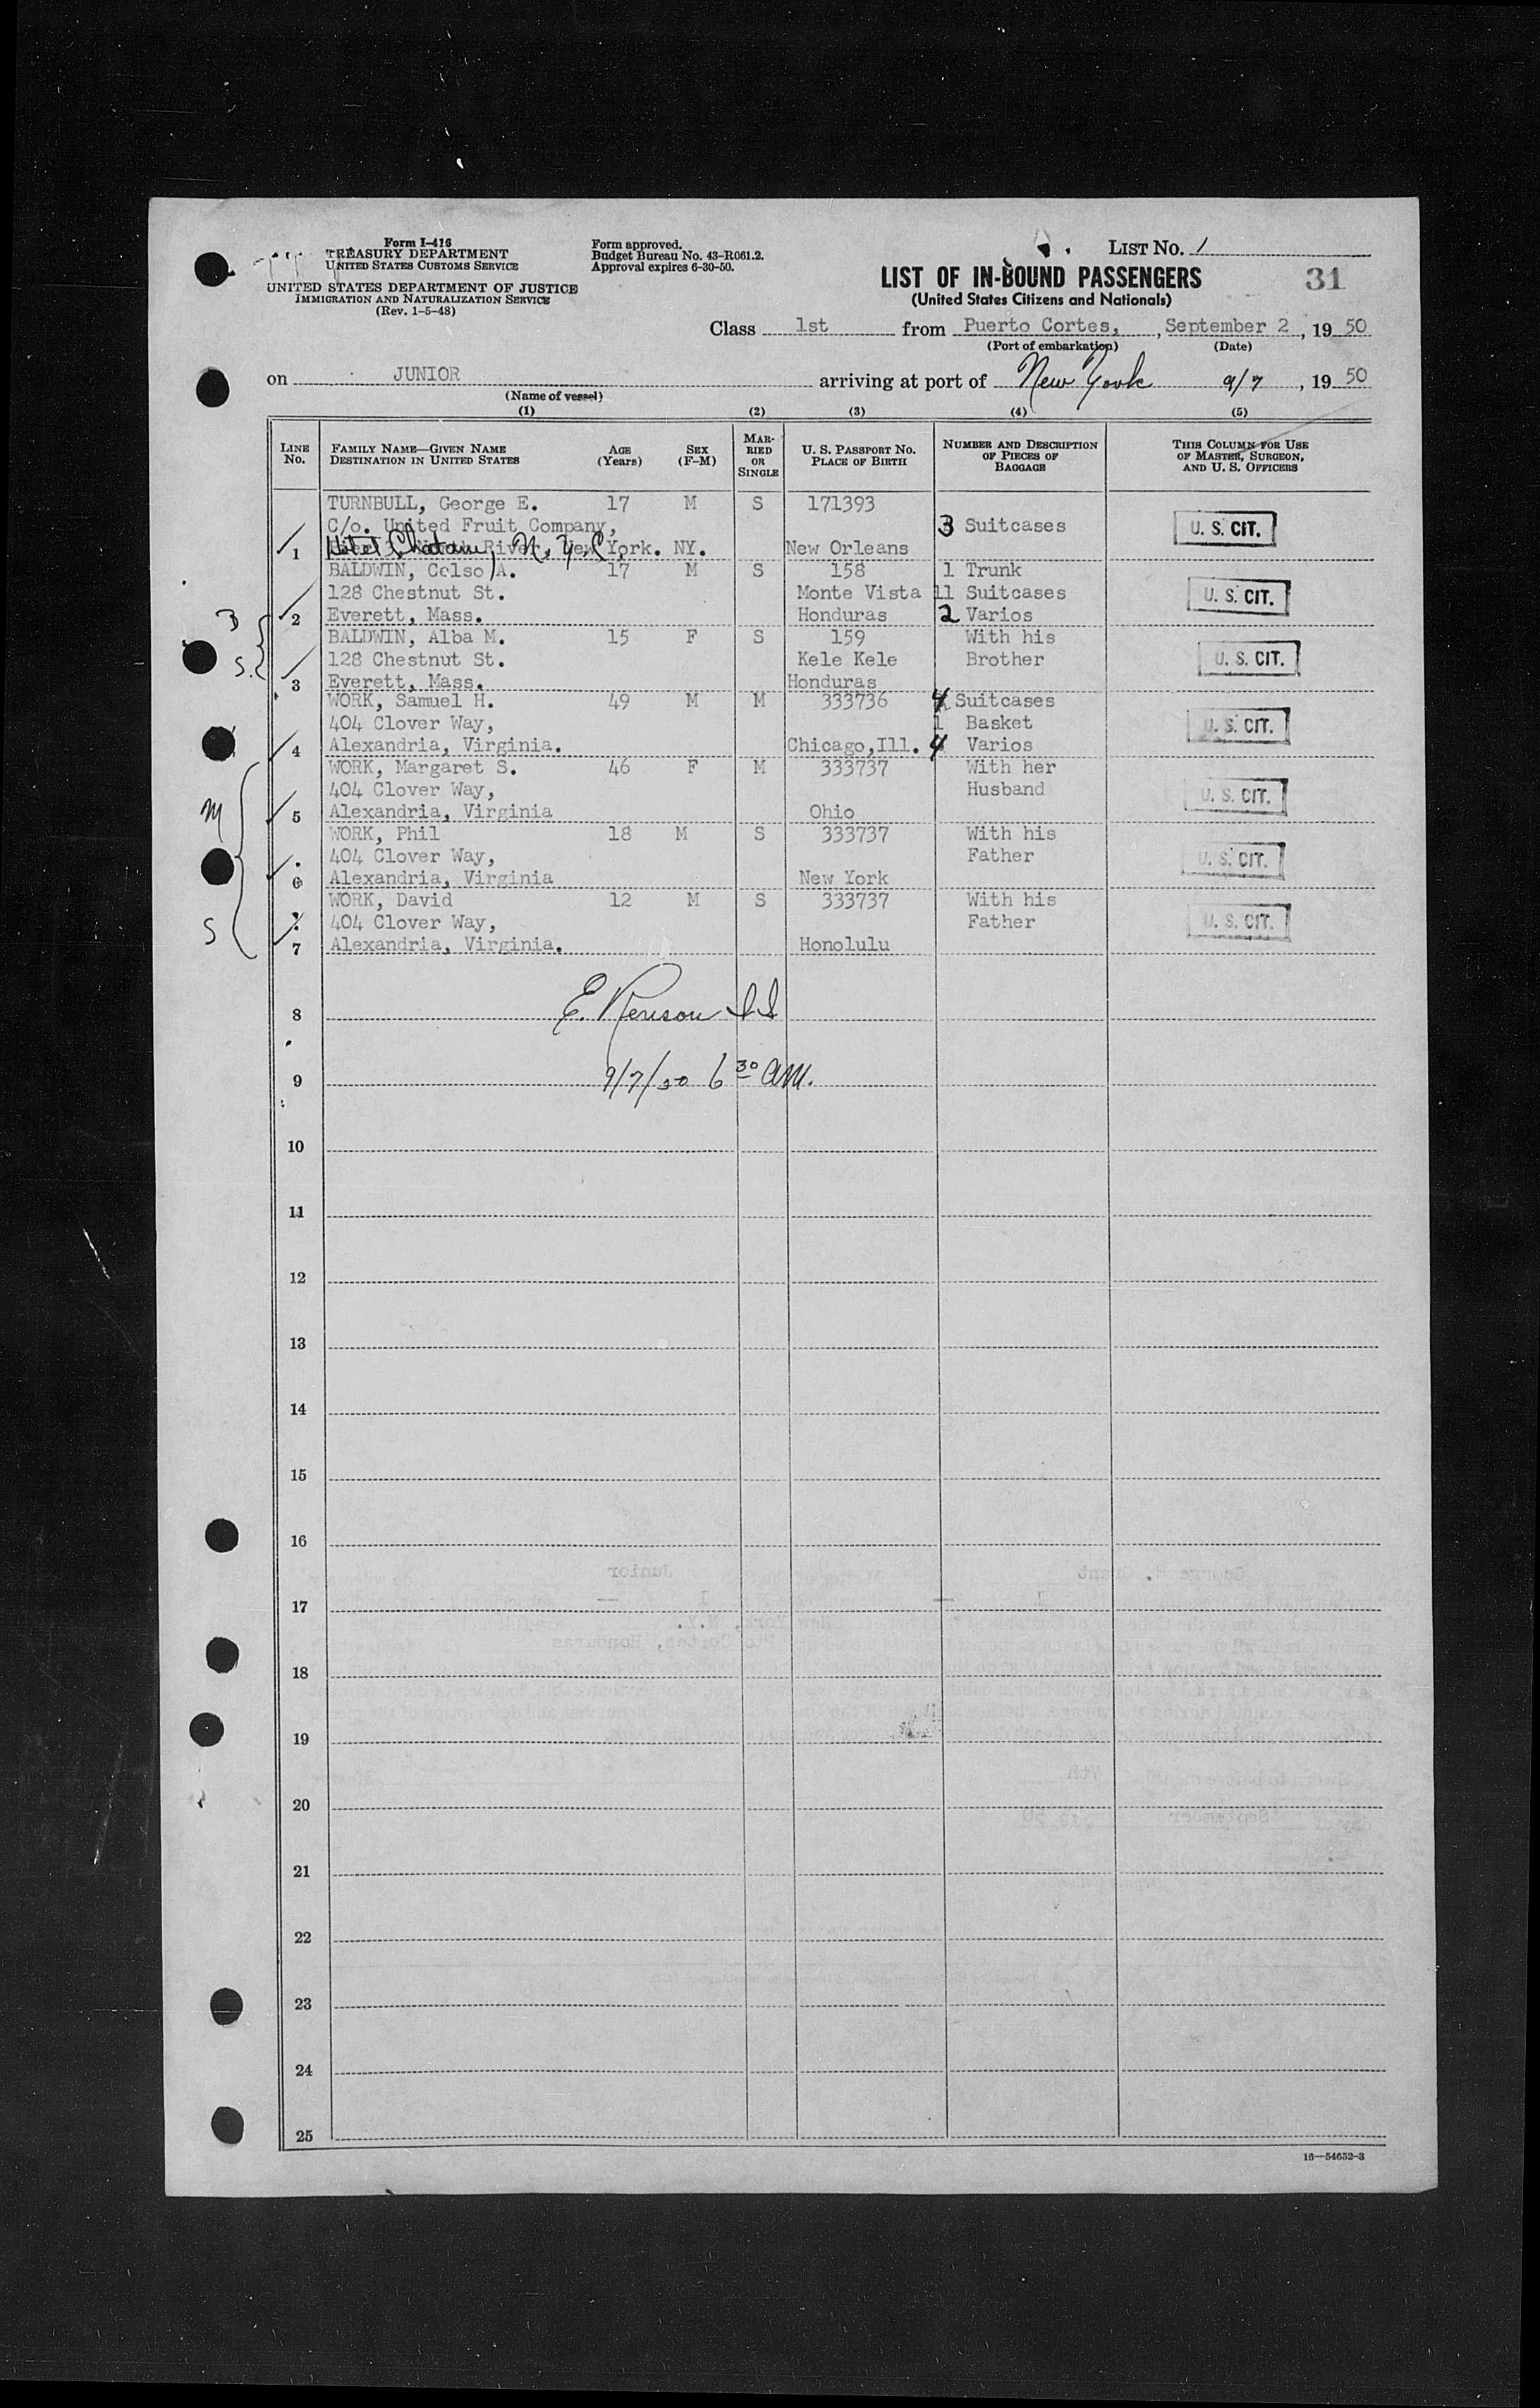 Form I-416
TREASURY DEPARTMENT
UNITED STATES CUSTOMS SERVICE
UNITED STATES DEPARTMENT OF JUSTICE
IMMIGRATION AND NATURALIZATION SERVICE
(Rev. 1-5-48)
Form approved.
Budget Bureau No. 43-R061.2.
Approval expires 6-30-50.
LIST NO. 1
LIST OF IN-BOUND PASSENGERS
31
(United States Citizens and Nationals)
Class 1st from Puerto Cortes, , September 2 , 19 50
(Port of embarkation) (Date)
on JUNIOR arriving at port of New York 9/7 , 19 50
(Name of vessel)
(1) (2) (3) (4) (5)
LINE NO. FAMILY NAME—GIVEN NAME DESTINATION IN UNITED STATES AGE (Years) SEX (F-M) MARRIED OR SINGLE U. S. PASSPORT NO. PLACE OF BIRTH NUMBER AND DESCRIPTION OF PIECES OF BAGGAGE THIS COLUMN FOR USE OF MASTER, SURGEON, AND U. S. OFFICERS
TURNBULL, George E. 17 M S 171393
C/o. United Fruit Company, 3 Suitcases U. S. CIT.
1 Hotel Chatam, N. Y. C, River, New York. NY. New Orleans
BALDWIN, Celso A. 17 M S 158 1 Trunk
128 Chestnut St. Monte Vista 11 Suitcases U. S. CIT.
2 Everett, Mass. Honduras 2 Varios
B
BALDWIN, Alba M. 15 F S 159 With his
S. 128 Chestnut St. Kele Kele Brother U. S. CIT.
3 Everett, Mass. Honduras
WORK, Samuel H. 49 M M 333736 4 Suitcases
404 Clover Way, 1 Basket U. S. CIT.
4 Alexandria, Virginia. Chicago,Ill. 4 Varios
WORK, Margaret S. 46 F M 333737 With her
404 Clover Way, Husband U. S. CIT.
M 5 Alexandria, Virginia Ohio
WORK, Phil 18 M S 333737 With his
404 Clover Way, Father U. S. CIT.
6 Alexandria, Virginia New York
WORK, David 12 M S 333737 With his
S 404 Clover Way, Father U. S. CIT.
7 Alexandria, Virginia. Honolulu
8 E. Renison
9 9/7/50 6 30 AM.
10
11
12
13
14
15
16
17
18
19
20
21
22
23
24
25
16—54652-3